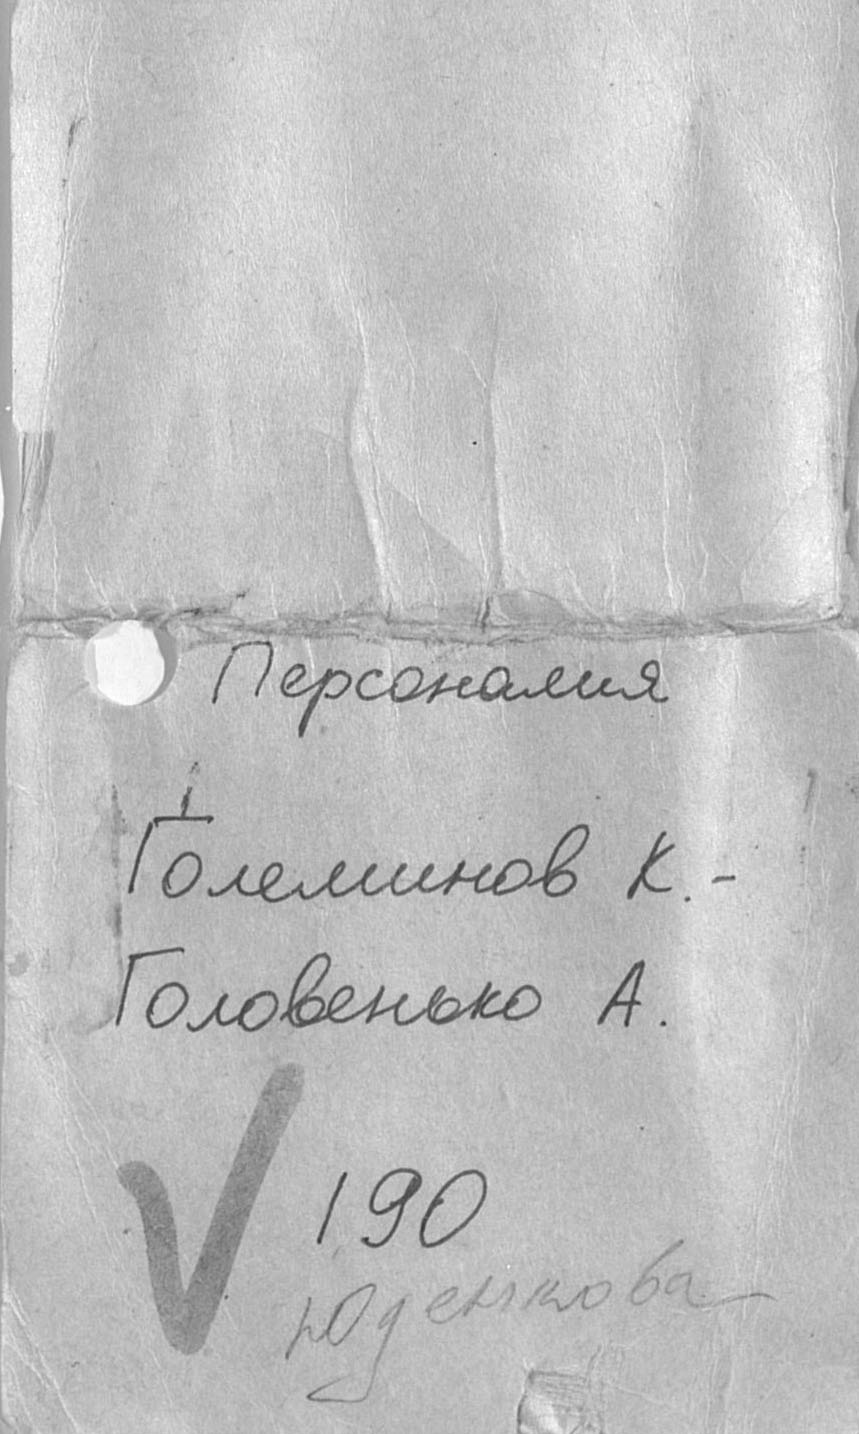 Персоналия
Големинов К.-
Головенько А.
190
Юденкова